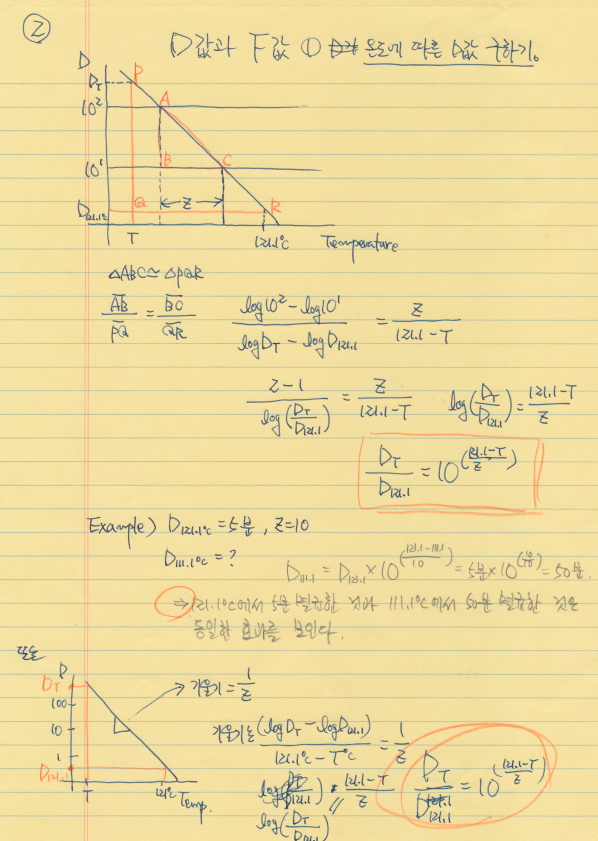 ②
D값과 F값 ① 온도에 따른 D값 구하기。
D
D_T P
10² A
10¹ B C
D₁₂₁.₁℃ Q ←Z→ R
T 121.1℃ Temperature
△ABC≃△PQR
AB/PQ = BC/QR (log10² − log10¹)/(logD_T − logD₁₂₁.₁) = Z/(121.1−T)
(2−1)/log(D_T/D₁₂₁.₁) = Z/(121.1−T) log(D_T/D₁₂₁.₁) = (121.1−T)/Z
D_T/D₁₂₁.₁ = 10^((121.1−T)/Z)
Example) D₁₂₁.₁℃ = 5분, Z=10
D₁₁₁.₁℃ = ? D₁₁₁.₁ = D₁₂₁.₁ × 10^((121.1−111.1)/10) = 5분 × 10^(10/10) = 50분.
⇒ 121.1℃에서 5분 멸균한 것과 111.1℃에서 50분 멸균한 것은
동일한 효과를 보인다.
또는
D
D_T → 기울기 = 1/Z
100
10 기울기는 (logD_T − logD₁₂₁.₁)/(121.1℃ − T℃) = 1/Z
1
D₁₂₁.₁
T 121℃ Temp.
= (121.1−T)/Z D_T/D₁₂₁.₁ = 10^((121.1−T)/Z)
log(D_T/D₁₂₁.₁)